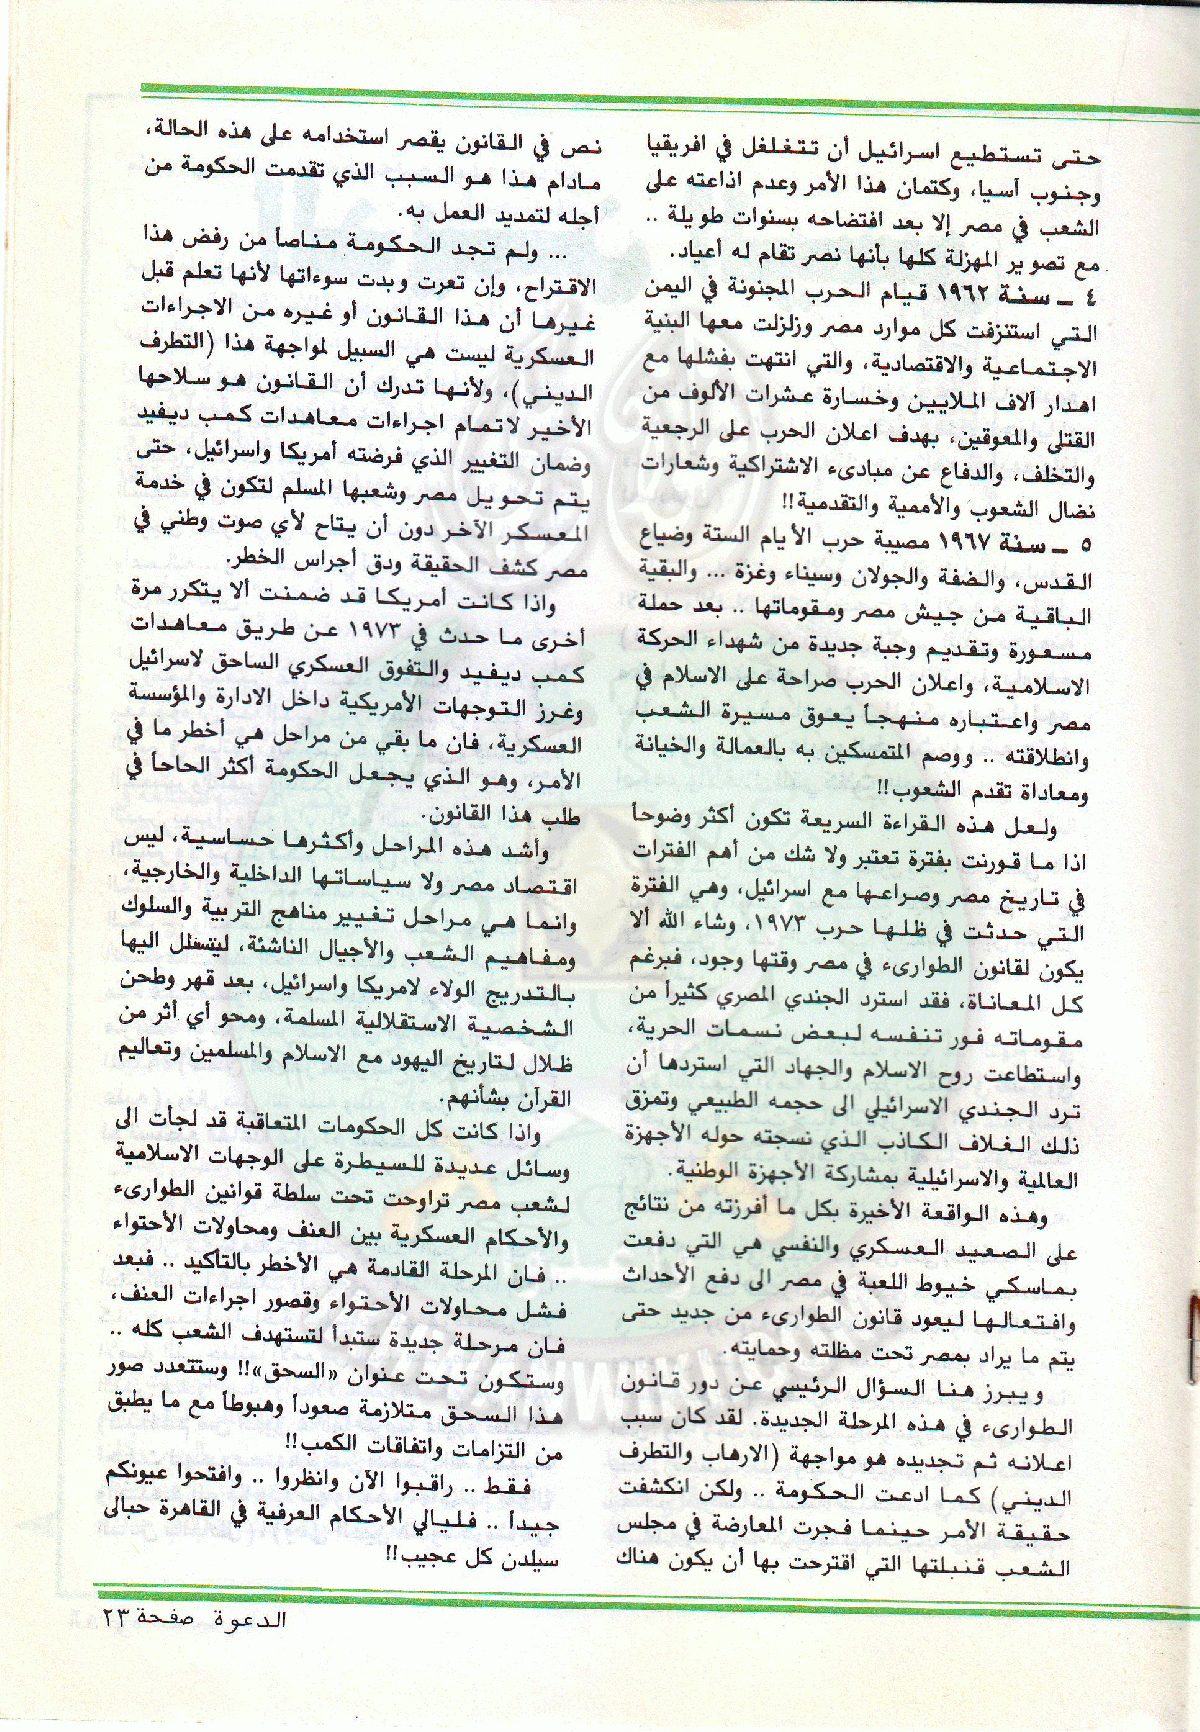 حتى تستطيع اسرائيل أن تتغلغل في افريقيا
وجنوب آسيا، وكتمان هذا الأمر وعدم اذاعته على
الشعب في مصر إلا بعد افتضاحه بسنوات طويلة ..
مع تصوير المهزلة كلها بأنها نصر تقام له أعياد.
٤ ــ سنة ١٩٦٢ قيام الحرب المجنونة في اليمن
التي استنزفت كل موارد مصر وزلزلت معها البنية
الاجتماعية والاقتصادية، والتي انتهت بفشلها مع
اهدار آلاف الملايين وخسارة عشرات الألوف من
القتلى والمعوقين، بهدف اعلان الحرب على الرجعية
والتخلف، والدفاع عن مبادىء الاشتراكية وشعارات
نضال الشعوب والأممية والتقدمية!!
٥ ــ سنة ١٩٦٧ مصيبة حرب الأيام الستة وضياع
القدس، والضفة والجولان وسيناء وغزة ... والبقية
الباقية من جيش مصر ومقوماتها .. بعد حملة
مسعورة وتقديم وجبة جديدة من شهداء الحركة
الاسلامية، واعلان الحرب صراحة على الاسلام في
مصر واعتباره منهجاً يعوق مسيرة الشعب
وانطلاقته .. ووصم المتمسكين به بالعمالة والخيانة
ومعاداة تقدم الشعوب!!
ولعل هذه القراءة السريعة تكون أكثر وضوحاً
اذا ما قورنت بفترة تعتبر ولا شك من أهم الفترات
في تاريخ مصر وصراعها مع اسرائيل، وهي الفترة
التي حدثت في ظلها حرب ١٩٧٣، وشاء الله ألا
يكون لقانون الطوارىء في مصر وقتها وجود، فبرغم
كل المعاناة، فقد استرد الجندي المصري كثيراً من
مقوماته فور تنفسه لبعض نسمات الحرية،
واستطاعت روح الاسلام والجهاد التي استردها أن
ترد الجندي الاسرائيلي الى حجمه الطبيعي وتمزق
ذلك الغلاف الكاذب الذي نسجته حوله الأجهزة
العالمية والاسرائيلية بمشاركة الأجهزة الوطنية.
وهذه الواقعة الأخيرة بكل ما أفرزته من نتائج
على الصعيد العسكري والنفسي هي التي دفعت
بماسكي خيوط اللعبة في مصر الى دفع الأحداث
وافتعالها ليعود قانون الطوارىء من جديد حتى
يتم ما يراد بمصر تحت مظلته وحمايته.
ويبرز هنا السؤال الرئيسي عن دور قانون
الطوارىء في هذه المرحلة الجديدة. لقد كان سبب
اعلانه ثم تجديده هو مواجهة (الارهاب والتطرف
الديني) كما ادعت الحكومة .. ولكن انكشفت
حقيقة الأمر حينما فجرت المعارضة في مجلس
الشعب قنبلتها التي اقترحت بها أن يكون هناك
نص في القانون يقصر استخدامه على هذه الحالة،
مادام هذا هو السبب الذي تقدمت الحكومة من
أجله لتمديد العمل به.
... ولم تجد الحكومة مناصاً من رفض هذا
الاقتراح، وإن تعرت وبدت سوءاتها لأنها تعلم قبل
غيرها أن هذا القانون أو غيره من الاجراءات
العسكرية ليست هي السبيل لمواجهة هذا (التطرف
الديني)، ولأنها تدرك أن القانون هو سلاحها
الأخير لاتمام اجراءات معاهدات كمب ديفيد
وضمان التغيير الذي فرضته أمريكا واسرائيل، حتى
يتم تحويل مصر وشعبها المسلم لتكون في خدمة
المعسكر الآخر دون أن يتاح لأي صوت وطني في
مصر كشف الحقيقة ودق أجراس الخطر.
واذا كانت أمريكا قد ضمنت ألا يتكرر مرة
أخرى ما حدث في ١٩٧٣ عن طريق معاهدات
كمب ديفيد والتفوق العسكري الساحق لاسرائيل
وغرز التوجهات الأمريكية داخل الادارة والمؤسسة
العسكرية، فان ما بقي من مراحل هي أخطر ما في
الأمر، وهو الذي يجعل الحكومة أكثر الحاحاً في
طلب هذا القانون.
وأشد هذه المراحل وأكثرها حساسية، ليس
اقتصاد مصر ولا سياساتها الداخلية والخارجية،
وانما هي مراحل تغيير مناهج التربية والسلوك
ومفاهيم الشعب والأجيال الناشئة، ليتسلل اليها
بالتدريج الولاء لامريكا واسرائيل، بعد قهر وطحن
الشخصية الاستقلالية المسلمة، ومحو أي أثر من
ظلال لتاريخ اليهود مع الاسلام والمسلمين وتعاليم
القرآن بشأنهم.
واذا كانت كل الحكومات المتعاقبة قد لجأت الى
وسائل عديدة للسيطرة على الوجهات الاسلامية
لشعب مصر تراوحت تحت سلطة قوانين الطوارىء
والأحكام العسكرية بين العنف ومحاولات الأحتواء
.. فان المرحلة القادمة هي الأخطر بالتأكيد .. فبعد
فشل محاولات الأحتواء وقصور اجراءات العنف،
فان مرحلة جديدة ستبدأ لتستهدف الشعب كله ..
وستكون تحت عنوان «السحق»!! وستتعدد صور
هذا السحق متلازمة صعوداً وهبوطاً مع ما يطبق
من التزامات واتفاقات الكمب!!
فقط .. راقبوا الآن وانظروا .. وافتحوا عيونكم
جيداً .. فليالي الأحكام العرفية في القاهرة حبالى
سيلدن كل عجيب!!
الدعوة صفحة ٢٣